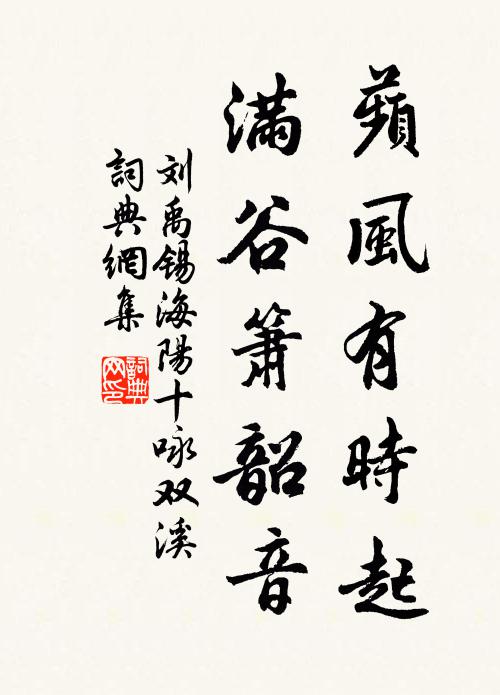 蘋風有時起
滿谷簫韶音
刘禹锡海陽十咏双溪
詞典網集
詞典網印